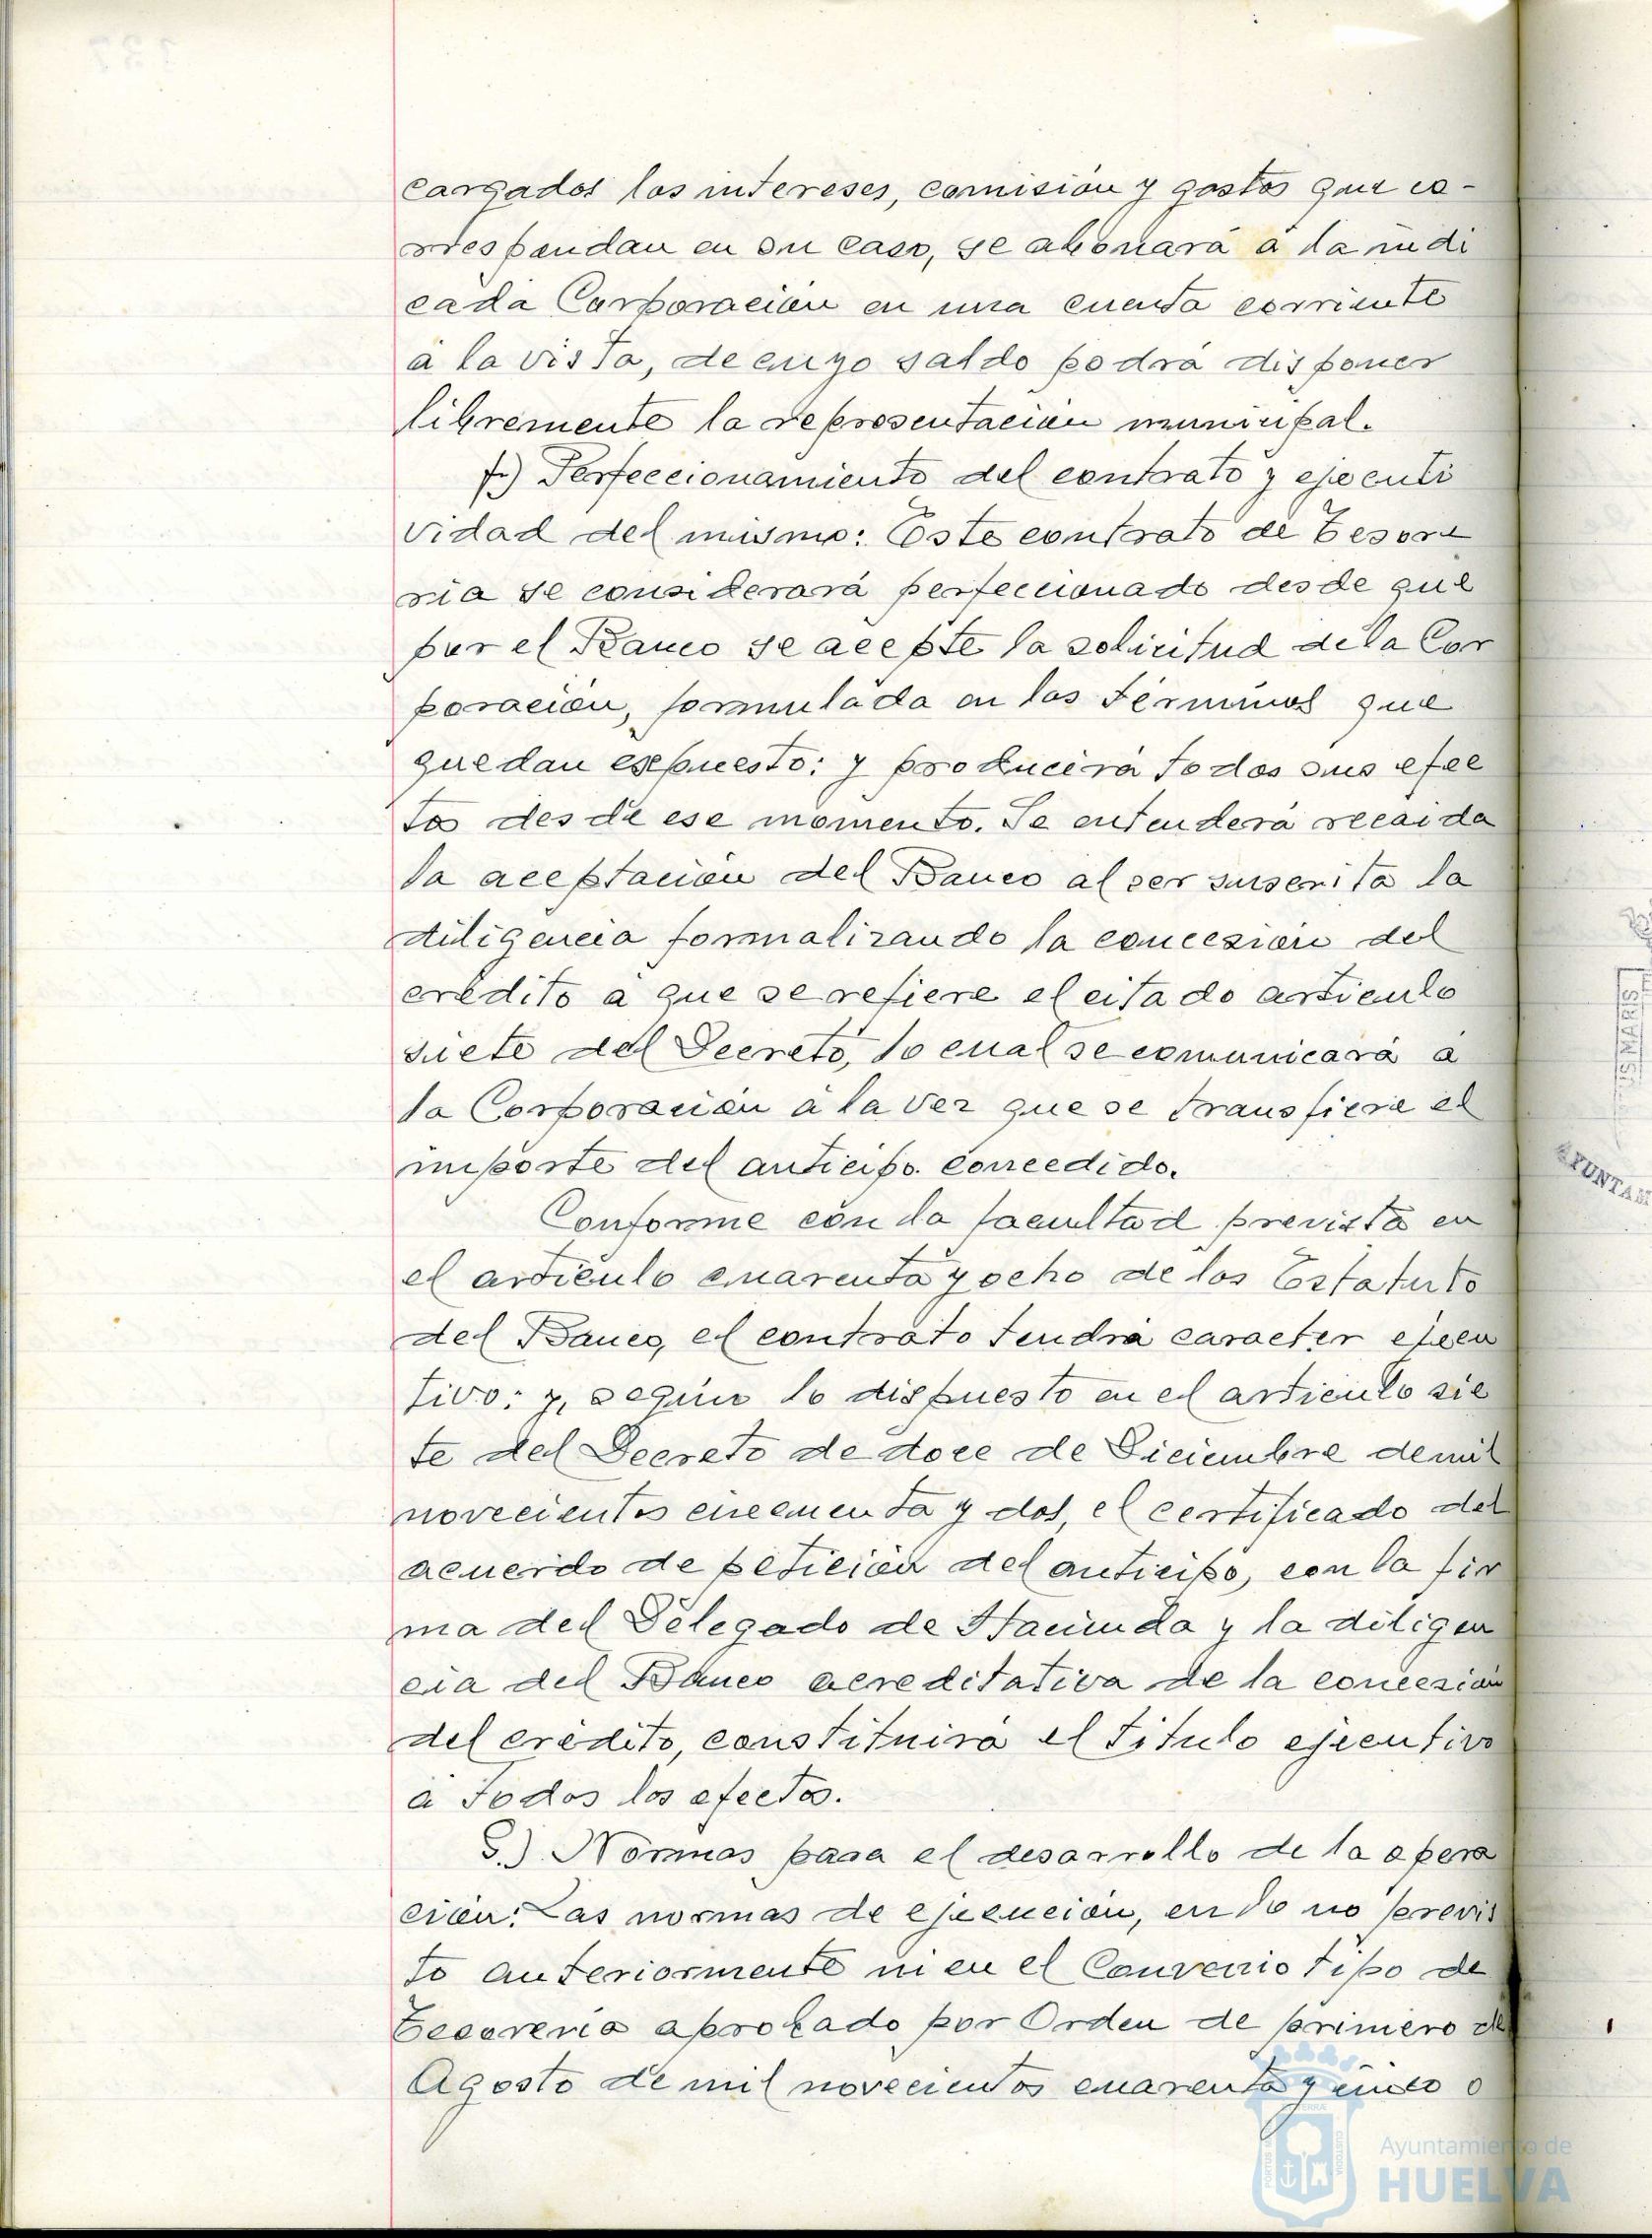 cargados los intereses, comisión y gastos que co-
rrespondan en su caso, se abonará á la indi
cada Corporación en una cuenta corriente
á la vista, de cuyo saldo podrá disponer
libremente la representación municipal.
f.) Perfeccionamiento del contrato y ejecuti
vidad del mismo: Este contrato de Tesore
ria se considerará perfeccionado desde que
por el Banco se acepte la solicitud de la Cor
poración, formulada en los términos que
quedan expuesto: y producirá todos sus efec
tos desde ese momento. Se entenderá recaida
la aceptación del Banco al ser suscrita la
diligencia formalizando la concesión del
crédito a que se refiere el citado articulo
siete del Decreto, lo cual se comunicará á
la Corporación á la vez que se transfiere el
importe del anticipo concedido.
Conforme con la facultad prevista en
el articulo cuarenta y ocho de los Estatuto
del Banco, el contrato tendrá caracter ejecu
tivo: y, según lo dispuesto en el articulo sie
te del Decreto de doce de Diciembre de mil
novecientos cincuenta y dos, el certificado del
acuerdo de petición del anticipo, con la fir
ma del Delegado de Hacienda y la diligen
cia del Banco acreditativa de la concesión
del crédito, constituirá el titulo ejecutivo
á todos los efectos.
G.) Normas para el desarrollo de la opera
ción: Las normas de ejecución, en lo no previs
to anteriormente ni en el Convenio tipo de
Tesoreria aprobado por Orden de primero de
Agosto de mil novecientos cuarenta y cinco o
Ayuntamiento de
HUELVA
AYUNTAM